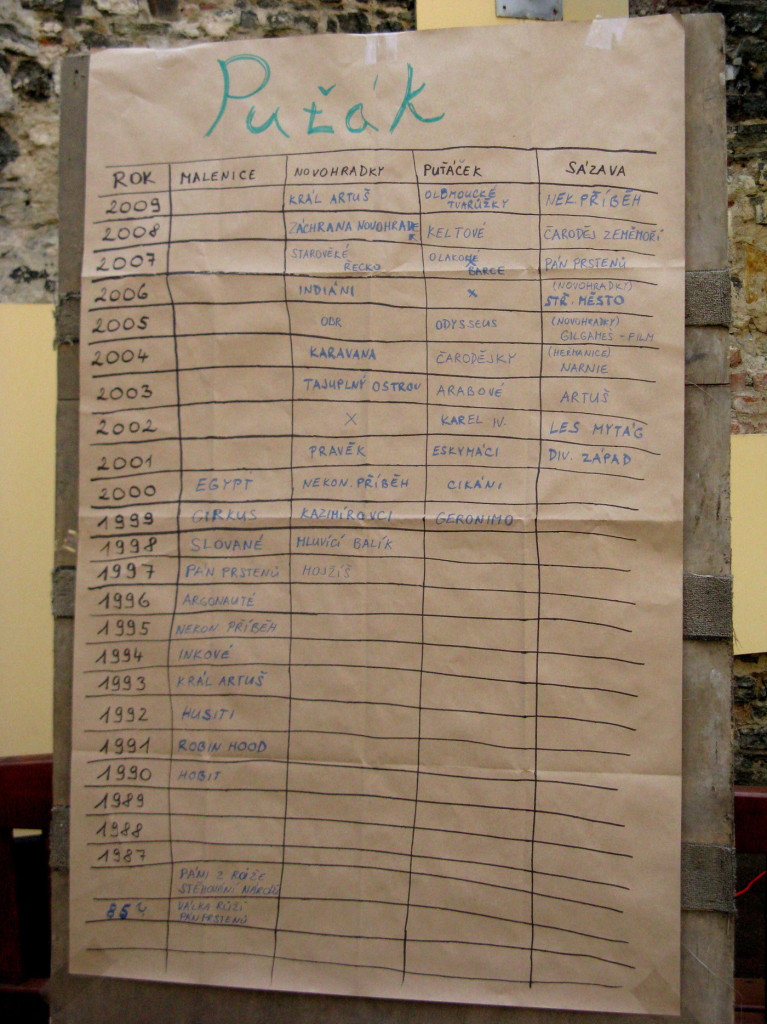 Puťák
ROK MALENICE NOVOHRADKY PUŤÁČEK SÁZAVA
2009 KRÁL ARTUŠ OLOMOUCKÉ TVARŮŽKY NEK PŘÍBĚH
2008 ZÁCHRANA NOVOHRADEK KELTOVÉ ČARODĚJ ZEMĚMOŘÍ
2007 STAROVĚKÉ ŘECKO BARCE PÁN PRSTENŮ
2006 INDIÁNI x (NOVOHRADKY) STŘ. MĚSTO
2005 ODR ODYSSEUS (NOVOHRADKY) GILGAMEŠ - FILM
2004 KARAVANA ČARODĚJKY (HEŘMANICE) NARNIE
2003 TAJUPLNÝ OSTROV ARABOVÉ ARTUŠ
2002 X KAREL IV. LES MYTÁG
2001 PRAVĚK ESKYMÁCI DIV. ZÁPAD
2000 EGYPT NEKON. PŘÍBĚH CIKÁNI
1999 CIRKUS KAZIMÍROVCI GERONIMO
1998 SLOVANÉ MLUVÍCÍ BALÍK
1997 PÁN PRSTENŮ MOJŽÍŠ
1996 ARGONAUTÉ
1995 NEKON. PŘÍBĚH
1994 INKOVÉ
1993 KRÁL ARTUŠ
1992 HUSITI
1991 ROBIN HOOD
1990 HOBIT
1989
1988
1987
PÁNI Z RŮŽE
STĚHOVÁNÍ NÁRODŮ
85 VÁLKA RŮŽÍ
PÁN PRSTENŮ